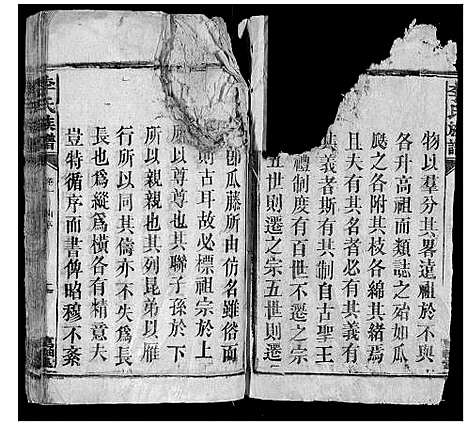 李氏族譜
物以羣分其畧遠祖於不與
各升高祖而類誌之殆如瓜
瓞之各附其枝各綿其緒焉
且夫有其名者必有其義有
其義者斯有其制自古聖王
禮制度有百世不遷之宗
五世則遷之宗五世則遷
卽瓜藤所由仿名雖俗而
則古耳故必標祖宗於上
以尊尊也其聯子孫於下
所以親親也其列昆弟以雁
行所以同其儔亦不失爲長
長也爲縱爲橫各有精意夫
豈特循序而書俾昭穆不紊
李氏族譜